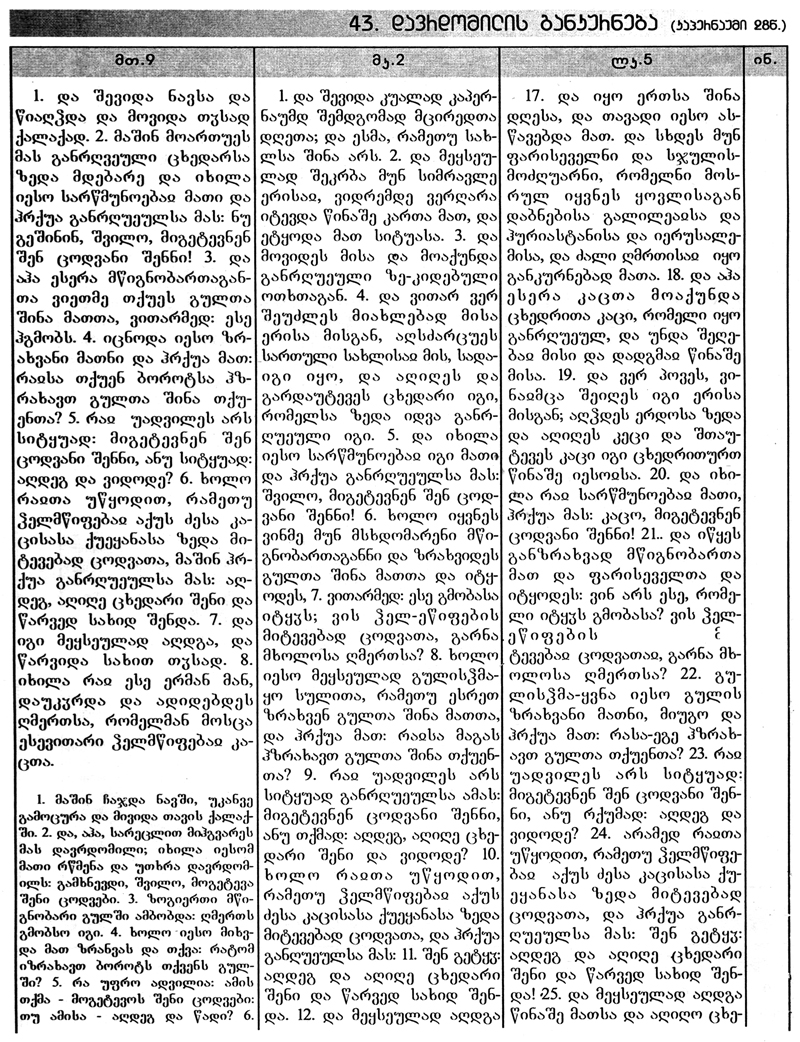 43. დავრდომილის განკურნება (კაპერნაუმი 28წ.)
მთ.9
1. და შევიდა ნავსა და
წიაღჴდა და მოვიდა თჳსად
ქალაქად. 2. მაშინ მოართუეს
მას განრღვეული ცხედარსა
ზედა მდებარე და იხილა
იესო სარწმუნოებაჲ მათი და
ჰრქუა განრღუეულსა მას: ნუ
გეშინინ, შვილო, მიგეტევნენ
შენ ცოდვანი შენნი! 3. და
აჰა ესერა მწიგნობართაგან-
თა ვიეთმე თქუეს გულთა
შინა მათთა, ვითარმედ: ესე
ჰგმობს. 4. იცნოდა იესო ზრ-
ახვანი მათნი და ჰრქუა მათ:
რაჲსა თქუენ ბოროტსა ჰზ-
რახავთ გულთა შინა თქუ-
ენთა? 5. რაჲ უადვილეს არს
სიტყუად: მიგეტევნენ შენ
ცოდვანი შენნი, ანუ სიტყუად:
აღდეგ და ვიდოდე? 6. ხოლო
რაჲთა უწყოდით, რამეთუ
ჴელმწიფებაჲ აქუს ძესა კა-
ცისასა ქუეყანასა ზედა მი-
ტევებად ცოდვათა, მაშინ ჰრ-
ქუა განრღუეულსა მას: აღ-
დეგ, აღიღე ცხედარი შენი და
წარვედ სახიდ შენდა. 7. და
იგი მეყსეულად აღდგა, და
წარვიდა სახით თჳსად. 8.
იხილა რაჲ ესე ერმან მან,
დაუკჳრდა და ადიდებდეს
ღმერთსა, რომელმან მოსცა
ესევითარი ჴელმწიფებაჲ კა-
ცთა.
1. მაშინ ჩაჯდა ნავში, უკანვე
გამოცურა და მივიდა თავის ქალაქ-
ში. 2. და, აჰა, სარეცლით მიჰგვარეს
მას დავრდომილი; იხილა იესომ
მათი რწმენა და უთხრა დავრდომ-
ილს: გამხნევდი, შვილო, მოგეტევა
შენი ცოდვები. 3. ზოგიერთი მწი-
გნობარი გულში ამბობდა: ღმერთს
გმობსო იგი. 4. ხოლო იესო მიხვ-
და მათ ზრახვას და თქვა: რატომ
იზრახავთ ბოროტს თქვენს გულ-
ში? 5. რა უფრო ადვილია: ამის
თქმა - მოგეტევოს შენი ცოდვები:
თუ ამისა - აღდეგ და წადი? 6.
მკ.2
1. და შევიდა კუალად კაპერ-
ნაუმდ შემდგომად მცირედთა
დღეთა; და ესმა, რამეთუ სახ-
ლსა შინა არს. 2. და მეყსეუ-
ლად შეკრბა მუნ სიმრავლე
ერისაჲ, ვიდრემდე ვერღარა
იტევდა წინაშე კართა მათ, და
ეტყოდა მათ სიტუასა. 3. და
მოვიდეს მისა და მოაქუნდა
განრღუეული ზე-კიდებული
ოთხთაგან. 4. და ვითარ ვერ
შეუძლეს მიახლებად მისა
ერისა მისგან, აღსძარცუეს
სართული სახლისაჲ მის, სადა-
იგი იყო, და აღიღეს და
გარდაუტევეს ცხედარი იგი,
რომელსა ზედა იდვა განრ-
ღუეული იგი. 5. და იხილა
იესო სარწმუნოებაჲ იგი მათი
და ჰრქუა განრღუეულსა მას:
შვილო, მიგეტევნენ შენ ცოდ-
ვანი შენნი! 6. ხოლო იყვნეს
ვინმე მუნ მსხდომარენი მწი-
გნობართაგანნი და ზრახვიდეს
გულთა შინა მათთა და იტყ-
ოდეს, 7. ვითარმედ: ესე გმობასა
იტყჳს; ვის ჴელ-ეწიფების
მიტევებად ცოდვათა, გარნა
მხოლოსა ღმერთსა? 8. ხოლო
იესო მეყსეულად გულისჴმა-
ყო სულითა, რამეთუ ესრეთ
ზრახვენ გულთა შინა მათთა,
და ჰრქუა მათ: რაჲსა მაგას
ჰზრახავთ გულთა შინა თქუენ-
თა? 9. რაჲ უადვილეს არს
სიტყუად განრღუეულსა ამას:
მიგეტევნენ შენ ცოდვანი შენნი,
ანუ თქმად: აღდეგ, აღიღე ცხე-
დარი შენი და ვიდოდე? 10.
ხოლო რაჲთა უწყოდით,
რამეთუ ჴელმწიფებაჲ აქუს
ძესა კაცისასა ქუეყანასა ზედა
მიტევებად ცოდვათა, და ჰრქუა
განღუეულსა მას: 11. შენ გეტყჳ:
აღდეგ და აღიღე ცხედარი
შენი და წარვედ სახიდ შენ-
და. 12. და მეყსეულად აღდგა
ლკ.5
17. და იყო ერთსა შინა
დღესა, და თავადი იესო ას-
წავებდა მათ. და სხდეს მუნ
ფარისეველნი და სჯულის-
მოძღუარნი, რომელნი მოს-
რულ იყვნეს ყოვლისაგან
დაბნებისა გალილეაჲსა და
ჰურიასტანისა და იერუსალე-
მისა, და ძალი ღმრთისაჲ იყო
განკურნებად მათა. 18. და აჰა
ესერა კაცთა მოაქუნდა
ცხედრითა კაცი, რომელი იყო
განრღუეულ, და უნდა შეღე-
ბაჲ მისი და დადგმაჲ წინაშე
მისა. 19. და ვერ პოვეს, ვი-
ნაჲმცა შეიღეს იგი ერისა
მისგან; აღჴდეს ერდოსა ზედა
და აღიღეს კეცი და შთაუ-
ტევეს კაცი იგი ცხედრითურთ
წინაშე იესოჲსა. 20. და იხი-
ლა რაჲ სარწმუნოებაჲ მათი,
ჰრქუა მას: კაცო, მიგეტევნენ
ცოდვანი შენნი! 21.. და იწყეს
განზრახვად მწიგნობართა
მათ და ფარისეველთა და
იტყოდეს: ვინ არს ესე, რომე-
ლი იტყჳს გმობასა? ვის ჴელ-
ეწიფების
ტევებაჲ ცოდვათაჲ, გარნა მხ-
ოლოსა ღმერთსა? 22. გუ-
ლისჴმა-ყვნა იესო გულის
ზრახვანი მათნი, მიუგო და
ჰრქუა მათ: რასა-ეგე ჰზრახ-
ავთ გულთა თქუენთა? 23. რაჲ
უადვილეს არს სიტყუად:
მიგეტევნენ შენ ცოდვანი შენ-
ნი, ანუ რქუმად: აღდეგ და
ვიდოდე? 24. არამედ რაჲთა
უწყოდით, რამეთუ ჴელმწიფე-
ბაჲ აქუს ძესა კაცისასა ქუ-
ეყანასა ზედა მიტევებად
ცოდვათა, და ჰრქუა განრ-
ღუეულსა მას: შენ გეტყჳ:
აღდეგ და აღიღე ცხედარი
შენი და წარვედ სახიდ შენ-
და! 25. და მეყსეულად აღდგა
წინაშე მათსა და აღიღო ცხე-
ინ.